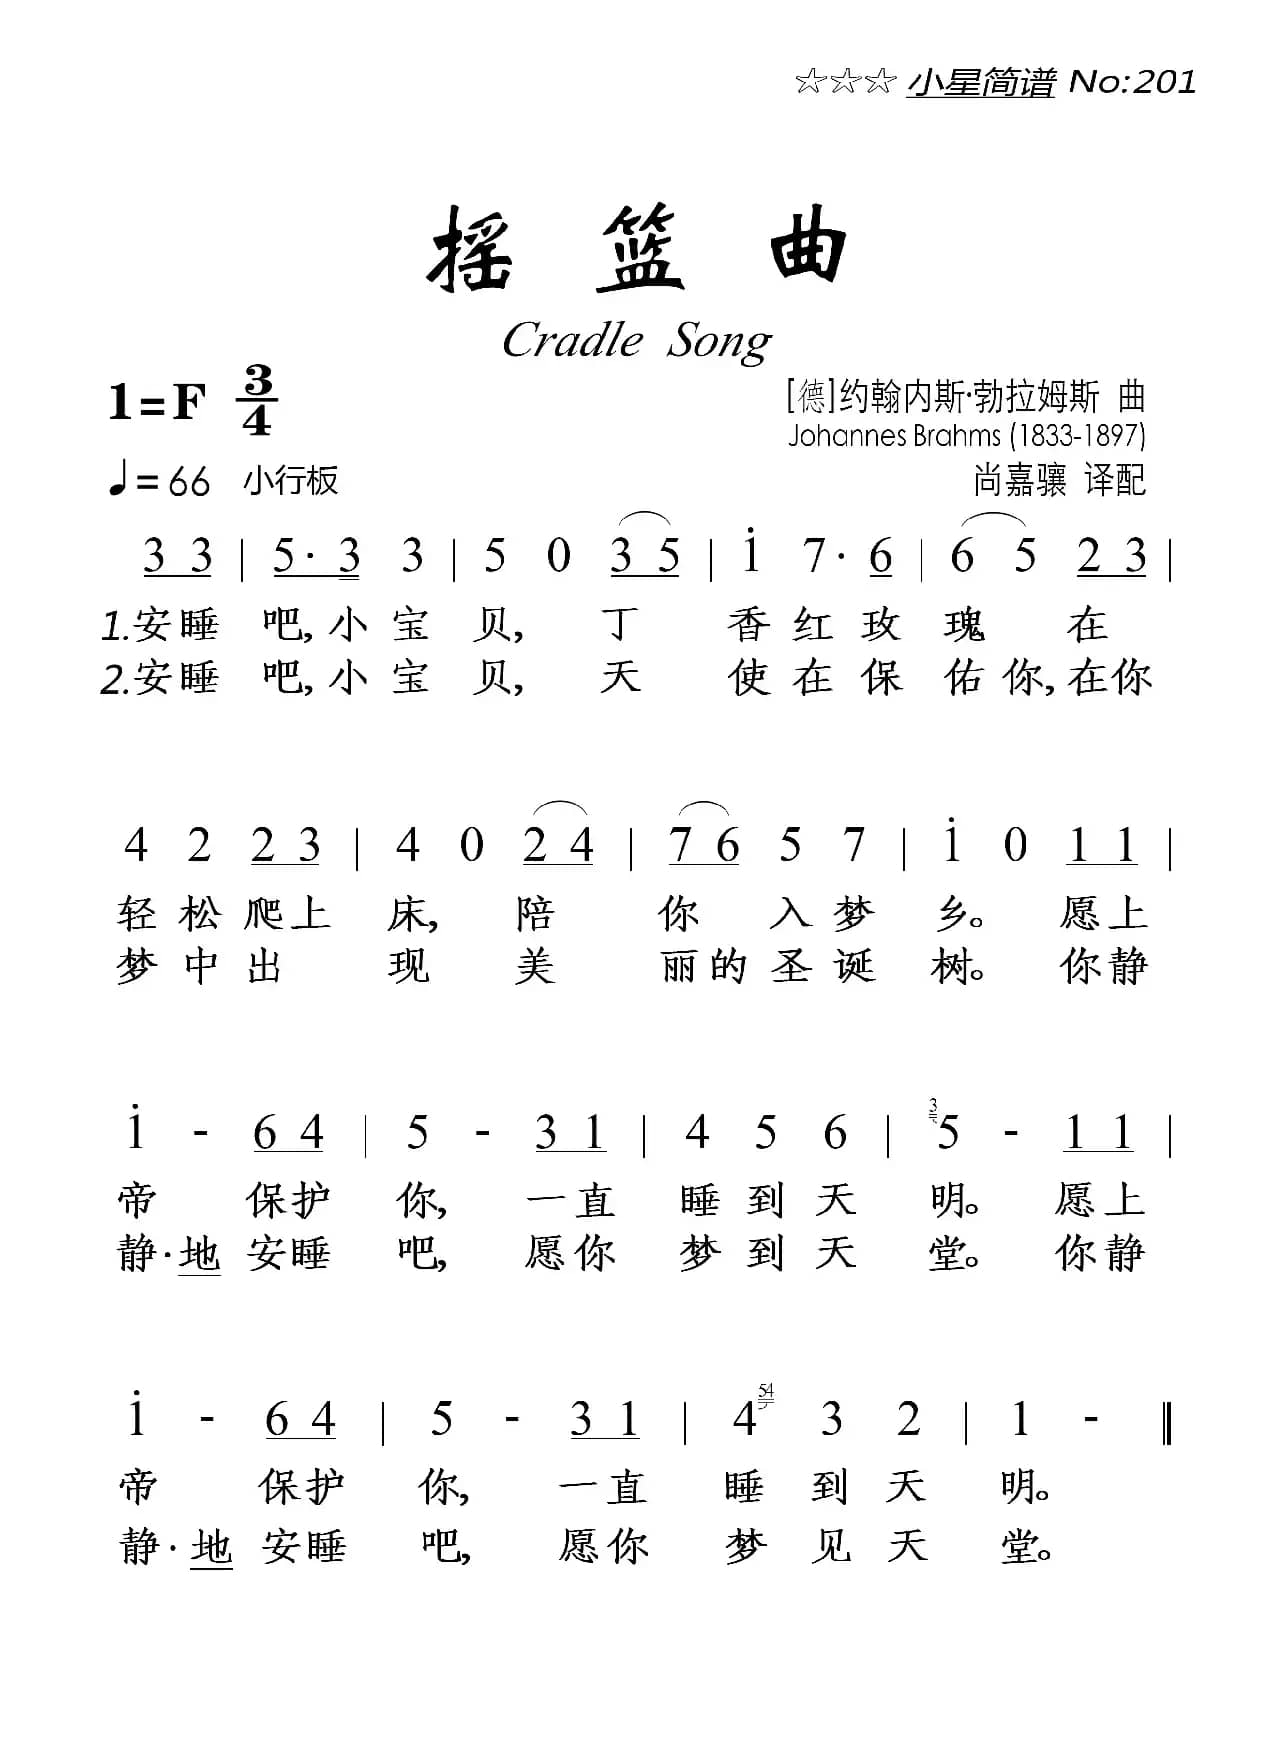 ☆☆☆ 小星简谱 No:201
摇篮曲
Cradle Song
1=F 3/4
[德]约翰内斯·勃拉姆斯 曲
Johannes Brahms (1833-1897)
♩=66 小行板
尚嘉骧 译配
3 3 | 5· 3 3 | 5 0 3 5 | i 7· 6 | 6 5 2 3 |
1.安睡 吧,小宝 贝, 丁 香红玫 瑰 在
2.安睡 吧,小宝 贝, 天 使在保 佑你,在你
4 2 2 3 | 4 0 2 4 | 7 6 5 7 | i 0 1 1 |
轻松爬上 床, 陪 你 入梦 乡。 愿上
梦中出 现 美 丽的圣诞 树。 你静
i - 6 4 | 5 - 3 1 | 4 5 6 | 3 5 - 1 1 |
帝 保护 你, 一直 睡到天 明。 愿上
静·地安睡 吧, 愿你 梦到天 堂。 你静
i - 6 4 | 5 - 3 1 | 4 54 3 2 | 1 - ‖
帝 保护 你, 一直 睡到天 明。
静·地安睡 吧, 愿你 梦见天 堂。